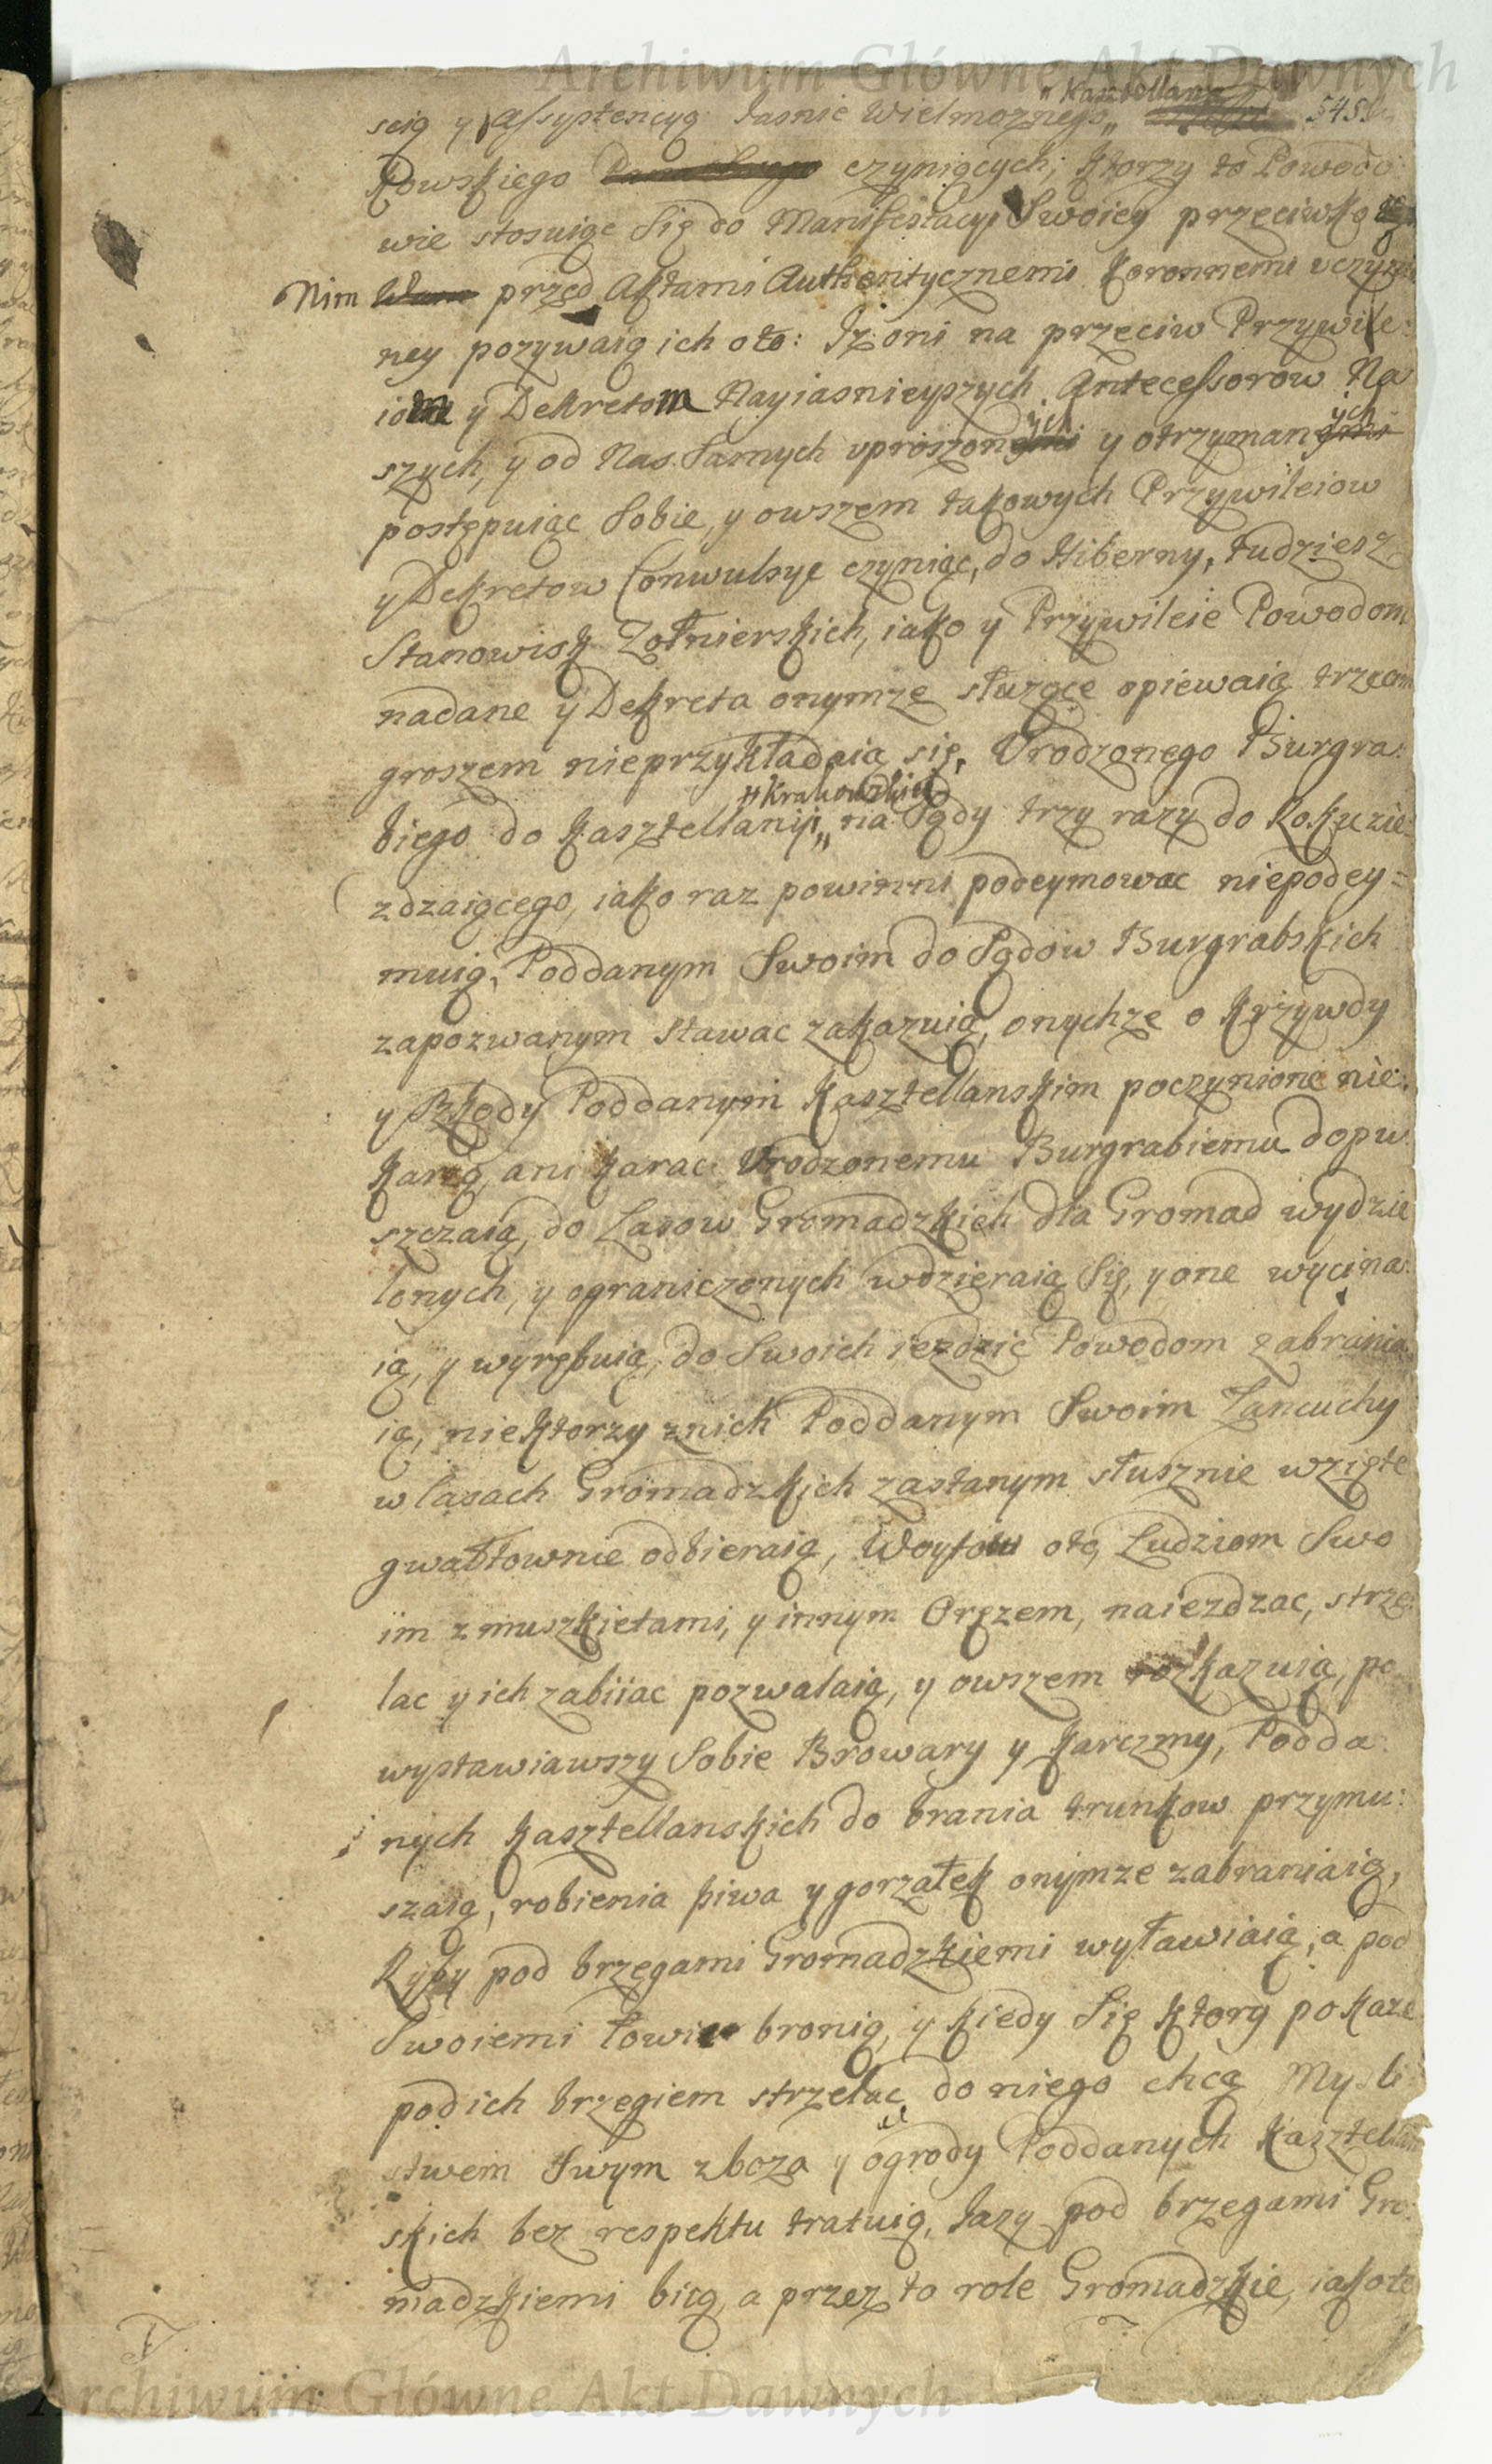 Archiwum Główne Akt Dawnych
„ Kasztellana
scią y Assystencyą Jasnie Wielmoznego „ 545
kowskiego czyniących; ktorzy to Powodo
wie stosuiąc Się do Manifestacyi Swoiey przeciwko
Nim przed Aktami Authentycznemi Koronnemi uczynio
ney pozywaią ich oto: Iz oni na przeciw Przywile:
iom y Dekretom Nayiasnieyszych Antecessorow Na
szych, y od Nas Samych uproszonych y otrzymanych
postępuiąc Sobie, y owszem takowych Przywileiow
y Dekretow Conwulsye czyniąc, do Hiberny, tudziesz
Stanowisk Zołnierskich, iako y Przywileie Powodom
nadane y Dekreta onymze słuzące opiewaią trzecim
groszem nieprzykładaią się, Urodzonego Burgra:
„ Krakowskiey
biego do Kasztellanyi „ na Sądy trzy razy do Roku zie:
zdzaiącego, iako raz powinni podeymowac niepodey=
muią, Poddanym Swoim do Sądow Burgrabskich
zapozwanym stawac zakazuią, onychze o Krzywdy
y Szkody Poddanym Kasztellanskim poczynione nie:
karzą, ani karac Urodzonemu Burgrabiemu dopu
szczaią, do Lasow Gromadzkich dla Gromad wydzie
lonych, y ograniczonych wdzieraią Się, y one wycina:
ią, y wyrębuią, do Swoich iezdzic Powodom zabrania
ią, niektorzy z nich Poddanym Swoim Lancuchy
w lasach Gromadzkich zastanym słusznie wzięte
gwałtownie odbieraią, Woytow oto Ludziom Swo
im z muszkietami, y innym Oręzem, naiezdzac, strze:
lac y ich zabiiac pozwalaią, y owszem rozkazuią, po
wystawiawszy Sobie Browary y Karczmy, Podda:
nych Kasztellanskich do brania trunkow przymu:
szaią, robienia piwa y gorzałek onymze zabraniaią,
Ryby pod brzegami Gromadzkiemi wyławiaią, a pod
Swoiemi łowic bronią, y kiedy Się ktory pokaze
pod ich brzegiem strzelac do niego chcą Mysli
stwem Swym zboza y ogrody Poddanych Kasztellan
skich bez respektu tratuią, Jazy pod brzegami Gro:
madzkiemi biią, a przez to role Gromadzkie, iakote
Archiwum Główne Akt Dawnych